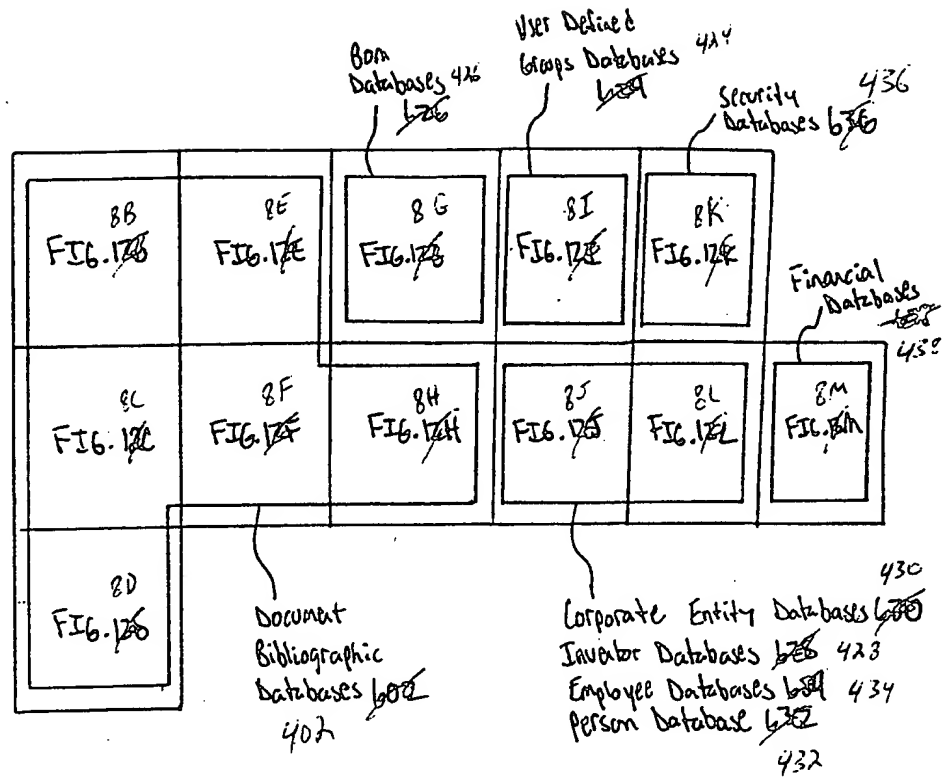 Bom
Databases 426
626
User Defined
Groups Databases 424
624
436
Security
Databases 636
8B
FIG.12B
8E
FIG.12E
8G
FIG.12G
8I
FIG.12I
8K
FIG.12K
Financial
Databases
438
8C
FIG.12C
8F
FIG.12F
8H
FIG.12H
8J
FIG.12J
8L
FIG.12L
8M
FIG.12M
8D
FIG.12D
Document
Bibliographic
Databases 602
402
430
Corporate Entity Databases 630
Inventor Databases 628 423
Employee Databases 634 434
Person Database 632
432